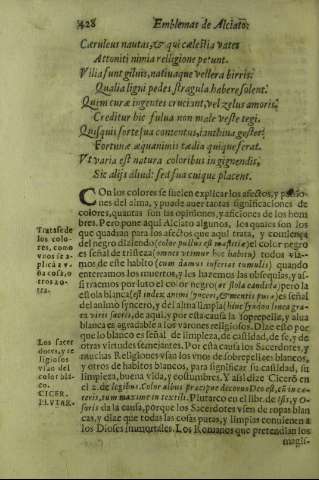 428 Emblemas de Alciato:
Cæruleus nautas, & qui cælestia vates
Attoniti nimia relligione petunt.
Vilia sunt giluis, natiuaque vellera birris:
Qualia ligni pedes stragula habere solent.
Quem curæ ingentes cruciant, vel zelus amoris:
Creditur hic fulua non male veste tegi.
Quisquis sorte sua contentus, ianthina gestet:
Fortunæ æquanimis tædia quique ferat.
Vt varia est natura coloribus in gignendis,
Sic alijs aliud: sed sua cuique placent.
COn los colores se suelen explicar los afectos, y passio-
nes del alma, y puede auer tantas significaciones de
colores, quantas son las opiniones, y aficiones de los hom
bres. Pero pone aqui Alciato algunos, los quales son los
que quadran para los afectos que aqui trata, y comiença
del negro diziendo (color pullus est mæstitiæ) el color negro
es señal de tristeza (omnes vtimur hoc habitu) todos vsa-
mos de este habito (cum damus inferias tumulis) quando
enterramos los muertos, y les hazemos las obsequias, y assi
traemos por luto el color negro (at stola candida) pero la
estola blanca (est index animi synceri, & mentis puræ) es señal
del animo syncero, y del alma limpia (hinc syndon linea gra-
ta viris sacris) de aqui, y por esta causa la sobrepelliz, y alua
blanca es agradable a los varones religiosos. Dize esto por
que lo blanco es señal de limpieza, de castidad, de fe, y de
otras virtudes semejantes. Por esta causa los Sacerdotes, y
muchas Religiones vsan los vnos de sobrepellizes blancos,
y otros de habitos blancos, para significar su castidad, su
limpieza, buena vida, y costumbres. Y assi dize Ciceró en
el 2. de legibus. Color albus præcipue decorus Deo est, cū in cæ-
teris, tum maxime in textili. Plutarco en el libr. de Isis, y O-
siris da la causa, porque los Sacerdotes visten de ropas blan
cas, y dize que todas las cosas puras, y limpias conuienen a
los Dioses inmortales. Los Romanos que pretendian los
magis-
Trata se de
los colo-
res, como
vnos se a-
plicā a v-
na cosa, o
tros a o-
tra.
Los sacer
dotes, y re
ligiosos
vsan del
color blā-
co.
CICER.
PLVTAR.